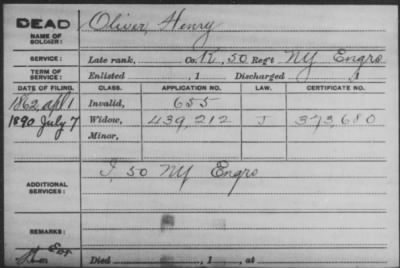 DEAD
NAME OF SOLDIER: Oliver, Henry
SERVICE: Late rank, Co. K, 50 Reg't NY Engrs
TERM OF SERVICE: Enlisted , 1 Discharged , 1
DATE OF FILING. CLASS. APPLICATION NO. LAW. CERTIFICATE NO.
1862, Apl 1 Invalid, 655
1890 July 7 Widow, 439,212 J 373,680
Minor,
ADDITIONAL SERVICES: I, 50 NY Engrs
REMARKS:
Died , 1 , at